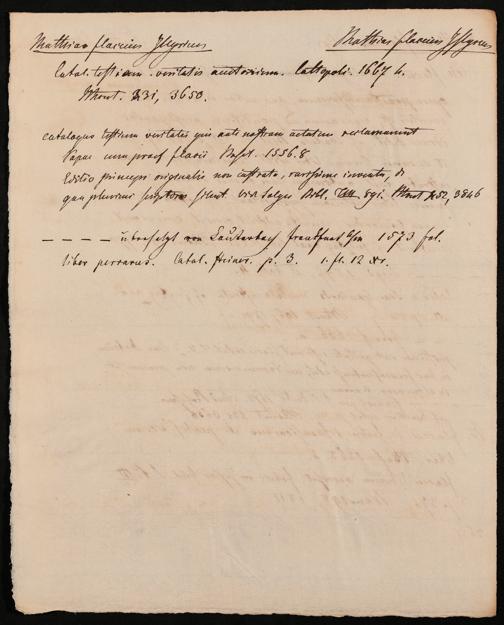 Matthias flacius Illyricus Mathias flacius Illyricus
Catal. testium. veritatis auctorium. Cattopoli. 1667 4.
331, 3650.
catalogus testium veritatis qui ante nostram aetatem reclamarunt
Papae cum praef flacii Basil. 1556. 8
Editio princeps originalis non castrata, rarissime inventa, de
qua plurimi scriptores silent. vid. Salgen Bibl. 891. 3846
– – – – übersetzt von Lauterbach, frankfurt 1573 fol.
liber perrarus. Catal. p. 3. 1. fl. 12 Xr.